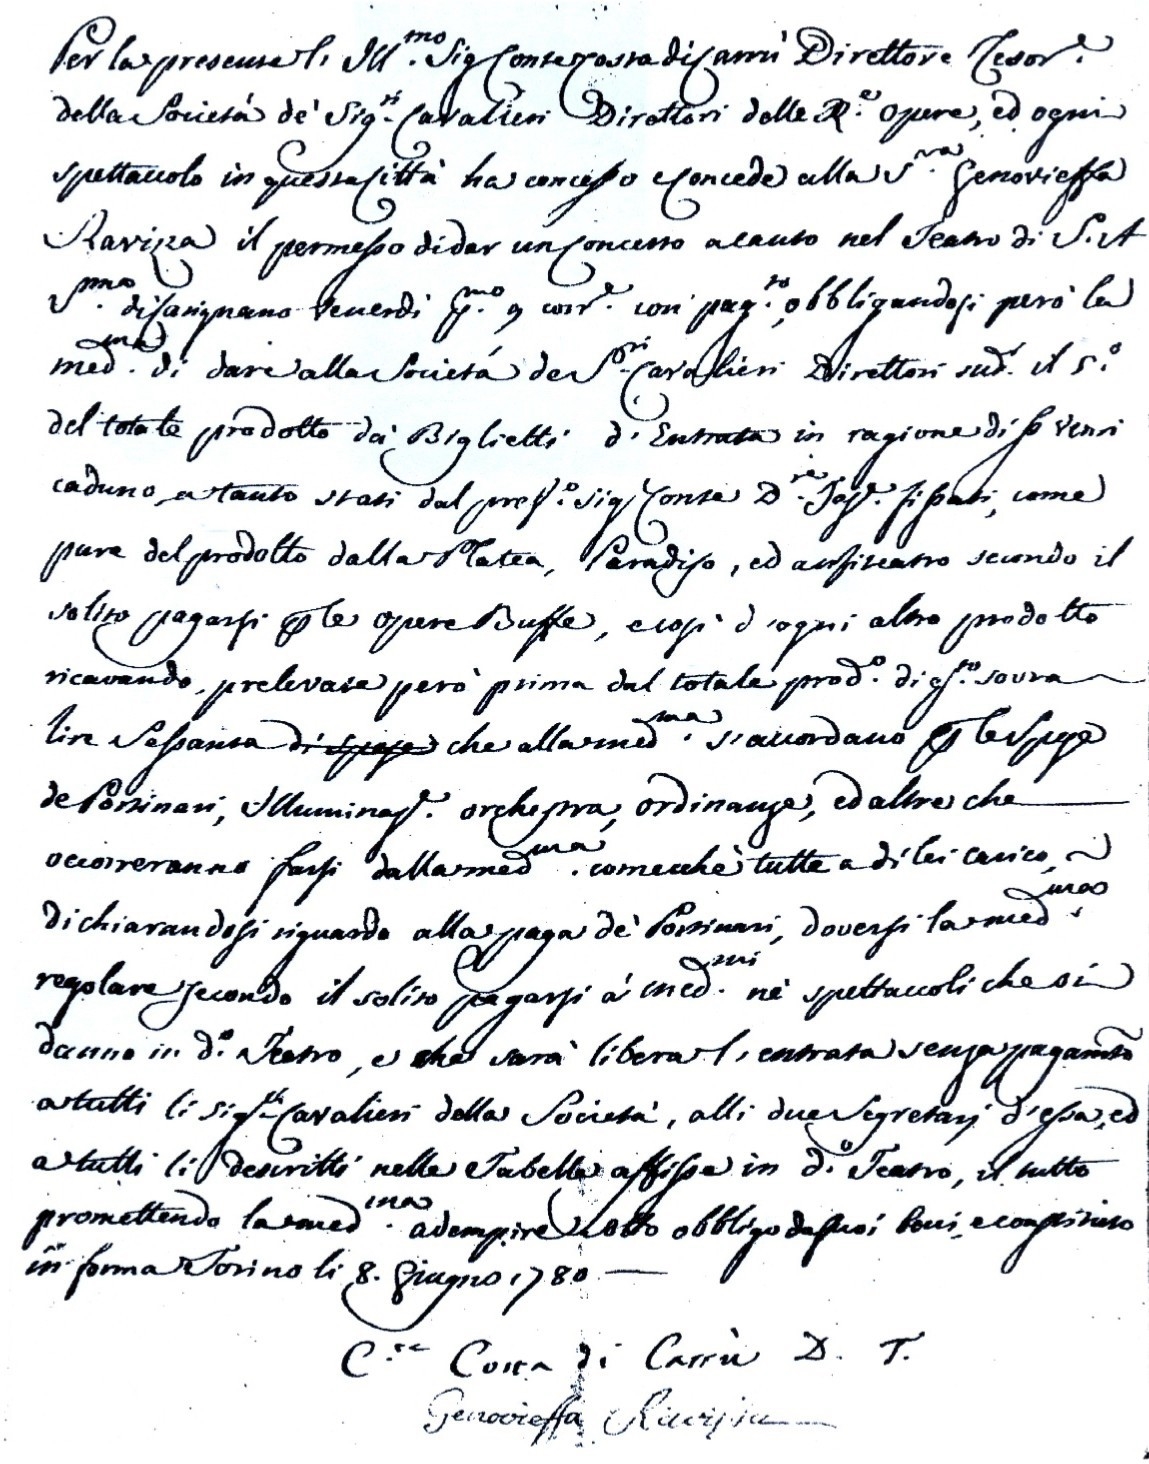 Per la presente l'Ill.mo Sig Conte Costa di Carrù Direttore Tesor.e
della Società de' Sig.ri Cavalieri Direttori delle R.e Opere, ed ogni
spettacolo in questa Città ha concesso e concede alla S.ra Genovieffa
Raviza il permesso di dar un Concerto a canto nel Teatro di S. A
S.ma di Carignano Venerdì 9 corr.e con pag.to, obbligandosi però la
med.ma di dare alla Società de S.ri Cavalieri Direttori sud.i il 5.o
del totale prodotto dà Biglietti d'Entrata in ragione di venti
caduno, a tanto stati dal pref.o Sig Conte D.re fissati, come
pure del prodotto dalla Platea, Paradiso, ed anfiteatro secondo il
solito pagarsi p le Opere Buffe, e così d'ogni altro prodotto
ricavando, prelevate però prima dal totale prod.o di q.to sovra
lire Sessanta di spese che alla med.ma s'accordano p le Spese
de Portinari, Illuminaz.e orchestra, ordinanze, ed altre che
occorreranno farsi dalla med.ma comecchè tutte a di lei carico,
dichiarandosi riguardo alla paga de' Portinari, doversi la med.ma
regolare secondo il solito pagarsi à med.mi nè spettacoli che si
danno in d.o Teatro, e che sarà libera l'entrata senza pagamto
a tutti li sig.ri Cavalieri della Società, alli due Segretarj d'essa, ed
a tutti li descritti nelle Tabelle affisse in d.o Teatro, il tutto
promettendo la med.ma adempire sotto obbligo de suoi beni, e constituto
in forma Torino li 8. Giugno 1780
C.te Costa di Carrù D. T.
Genovieffa Raviza